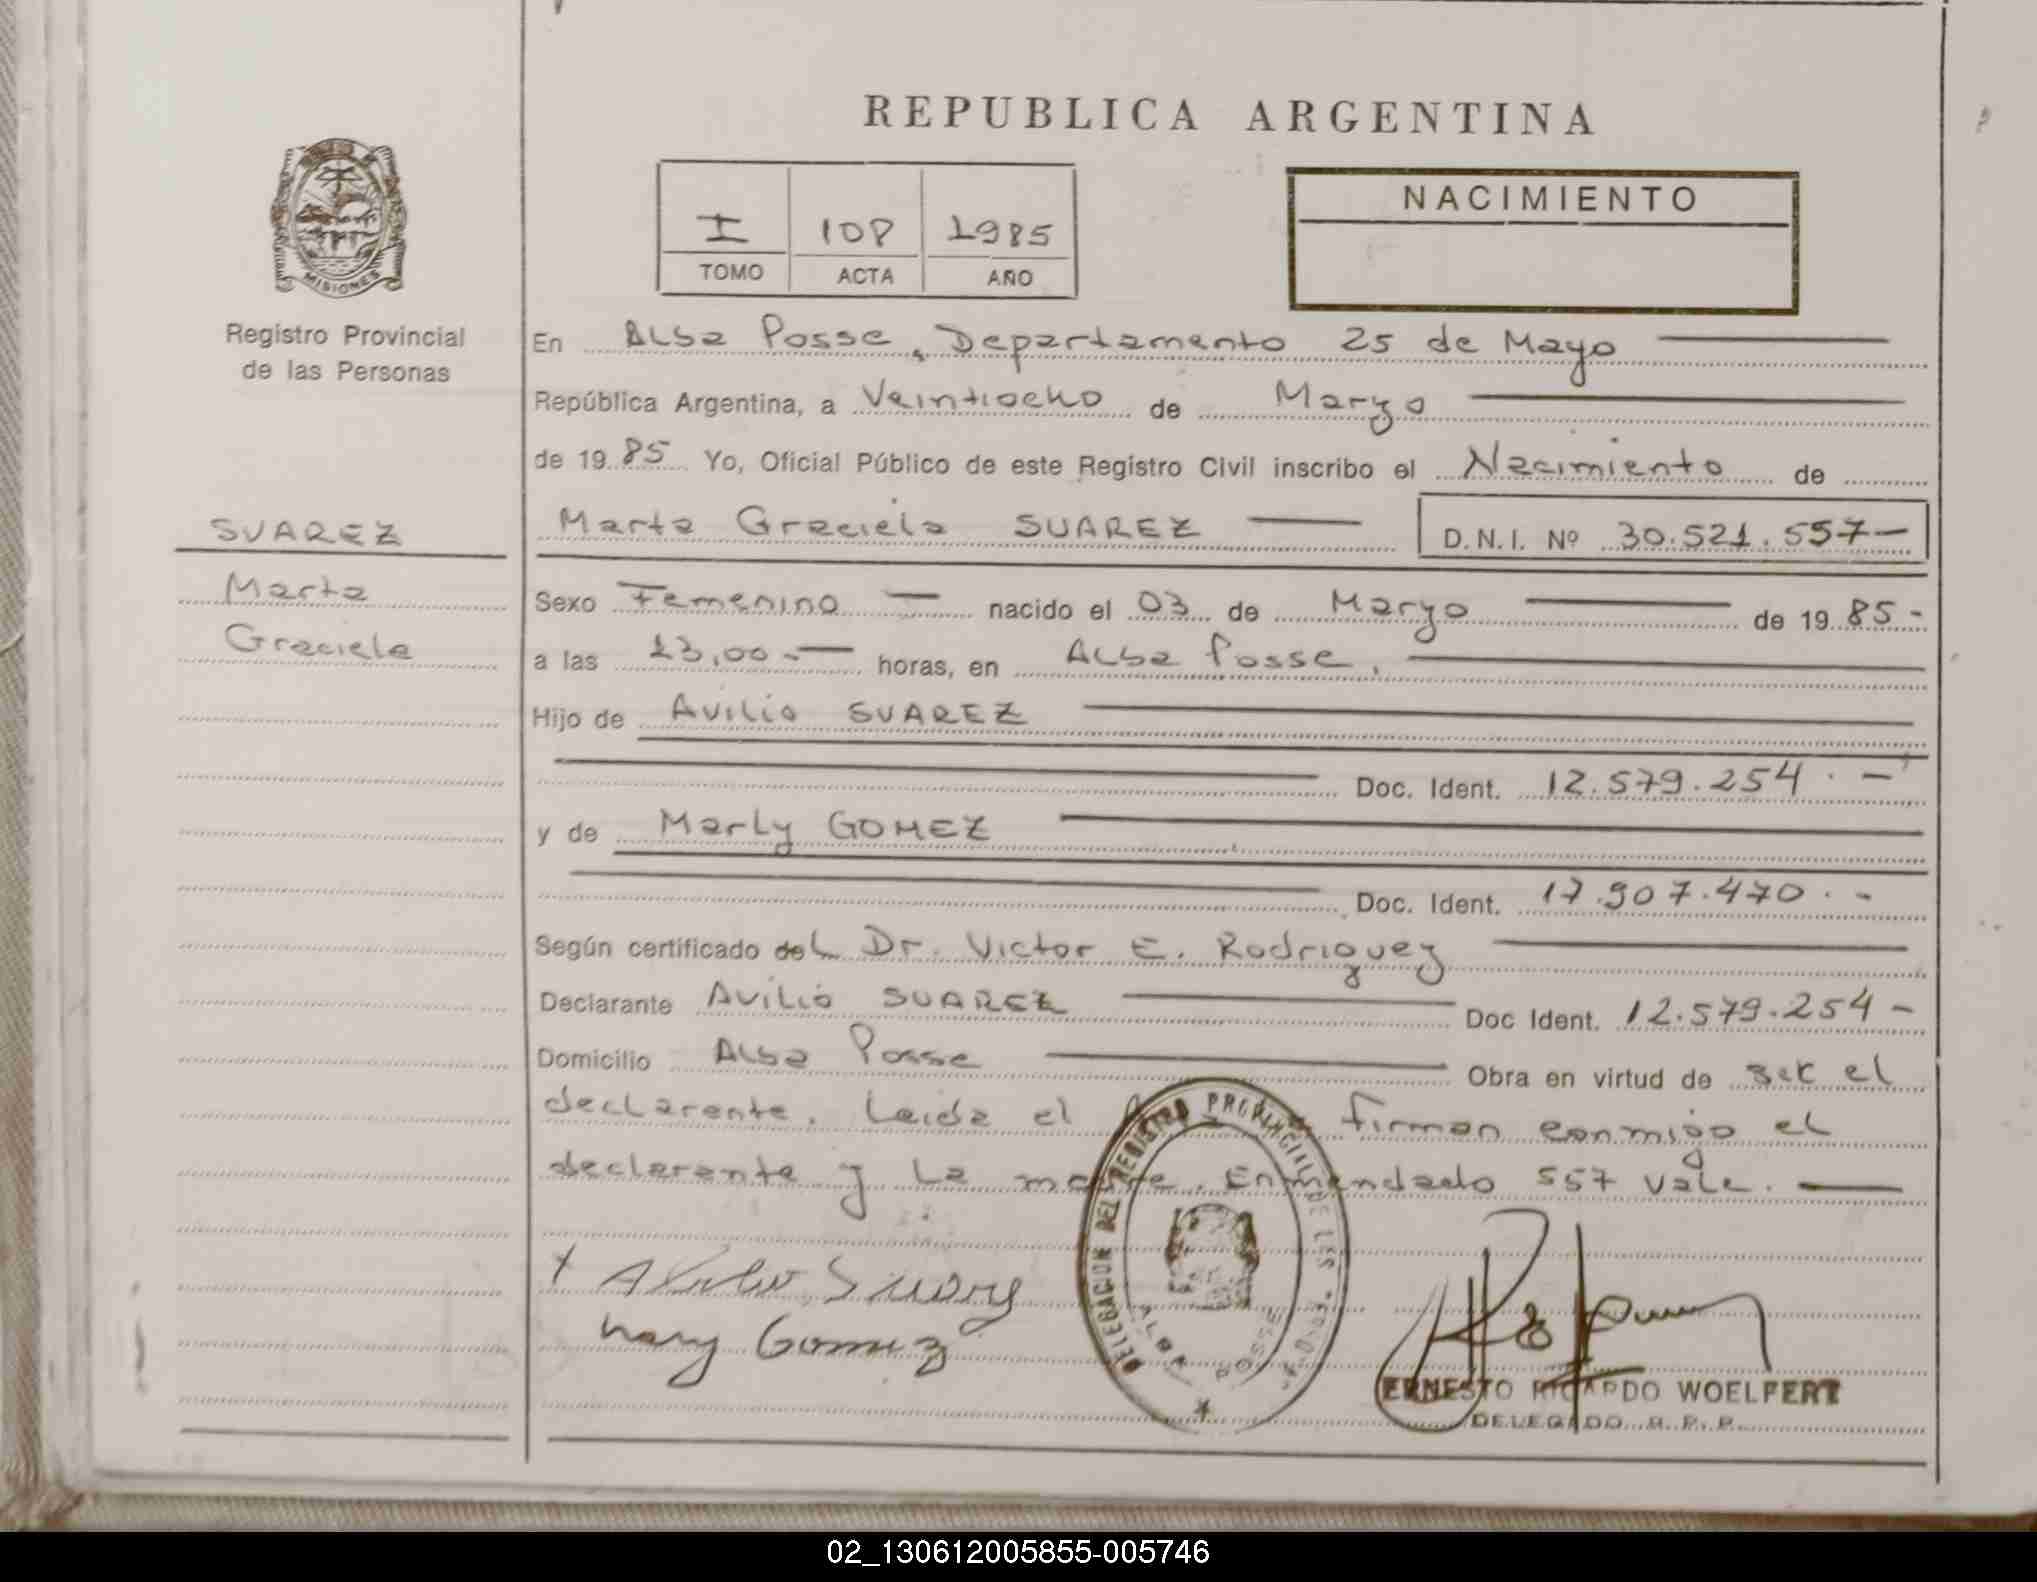 REPUBLICA ARGENTINA
I 108 1985
TOMO ACTA AÑO
NACIMIENTO
MISIONES
Registro Provincial
de las Personas
SUAREZ
Marta
Graciela
En Alba Posse, Departamento 25 de Mayo
República Argentina, a Veintiocho de Marzo
de 1985 Yo, Oficial Público de este Registro Civil inscribo el Nacimiento de
Marta Graciela SUAREZ D.N.I. Nº 30.521.557-
Sexo Femenino nacido el 03 de Marzo de 1985-
a las 23,00.- horas, en Alba Posse.
Hijo de Avilio SUAREZ
Doc. Ident. 12.579.254.-
y de Marly GOMEZ
Doc. Ident. 17.907.470.-
Según certificado del Dr. Victor E. Rodriguez
Declarante Avilio SUAREZ Doc Ident. 12.579.254-
Domicilio Alba Posse Obra en virtud de ser el
declarante. Leida el firman conmigo el
declarante y la madre. Enmendado 557 vale.
Suarez
Gomez
DELEGACION DEL REGISTRO PROVINCIAL DE LAS
ALBA POSSE
ERNESTO RICARDO WOELFERT
DELEGADO R. P. P.
02_130612005855-005746